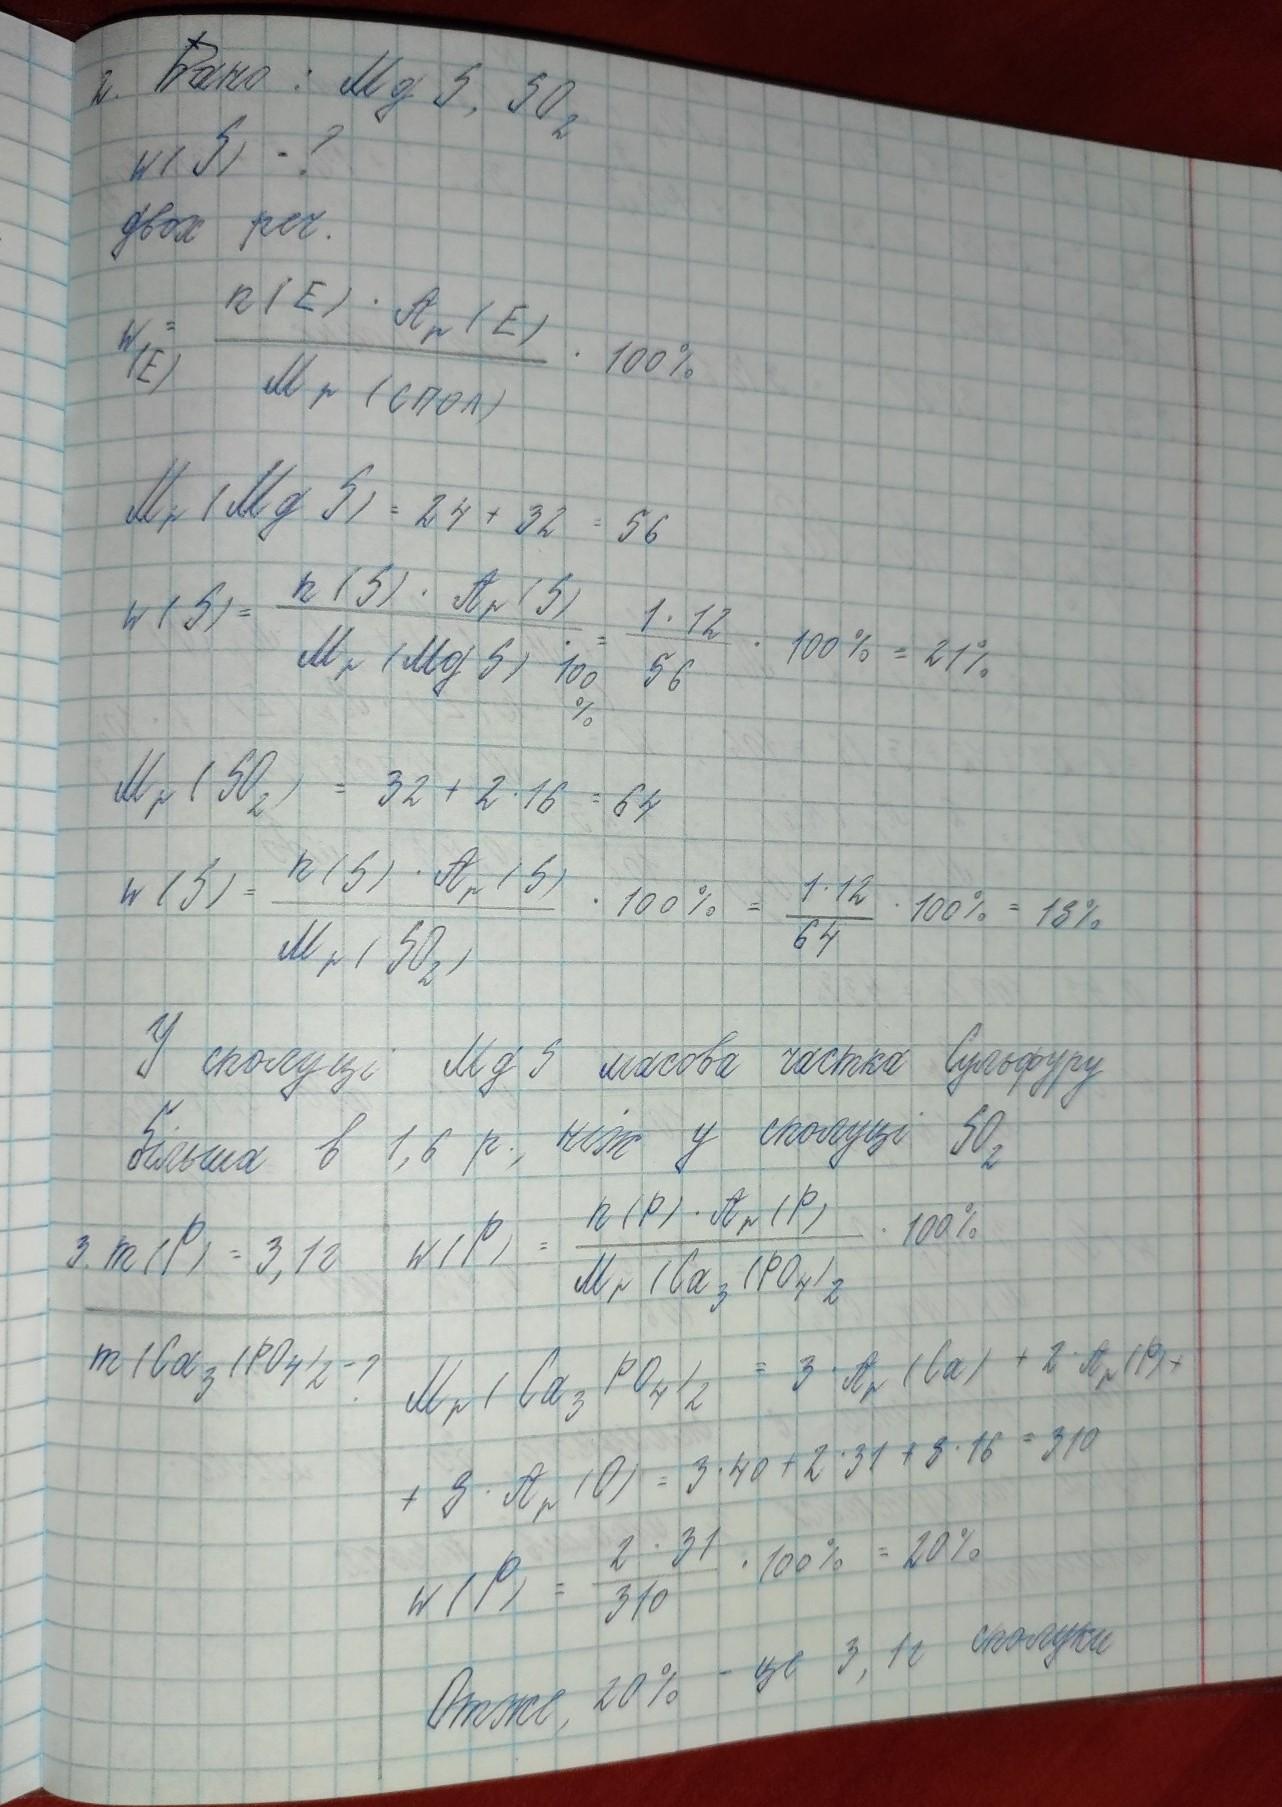 2. Дано: MgS, SO₂
w(S) - ?
двох реч.
w(E) = n(E) · Ar(E) / Mr(спол) · 100%
Mr(MgS) = 24 + 32 = 56
w(S) = n(S) · Ar(S) / Mr(MgS) · 100% = 1 · 12 / 56 · 100% = 21%
Mr(SO₂) = 32 + 2·16 = 64
w(S) = n(S) · Ar(S) / Mr(SO₂) · 100% = 1·12 / 64 · 100% = 13%
У сполуці MgS масова частка Сульфуру
більша в 1,6 р., ніж у сполуці SO₂
3. m(P) = 3,1г
m(Ca₃(PO₄)₂ - ?
w(P) = n(P) · Ar(P) / Mr(Ca₃(PO₄)₂ · 100%
Mr(Ca₃PO₄)₂ = 3·Ar(Ca) + 2·Ar(P)+
+ 8·Ar(O) = 3·40+2·31+8·16 = 310
w(P) = 2·31 / 310 · 100% = 20%
Отже, 20% - це 3,1г сполуки